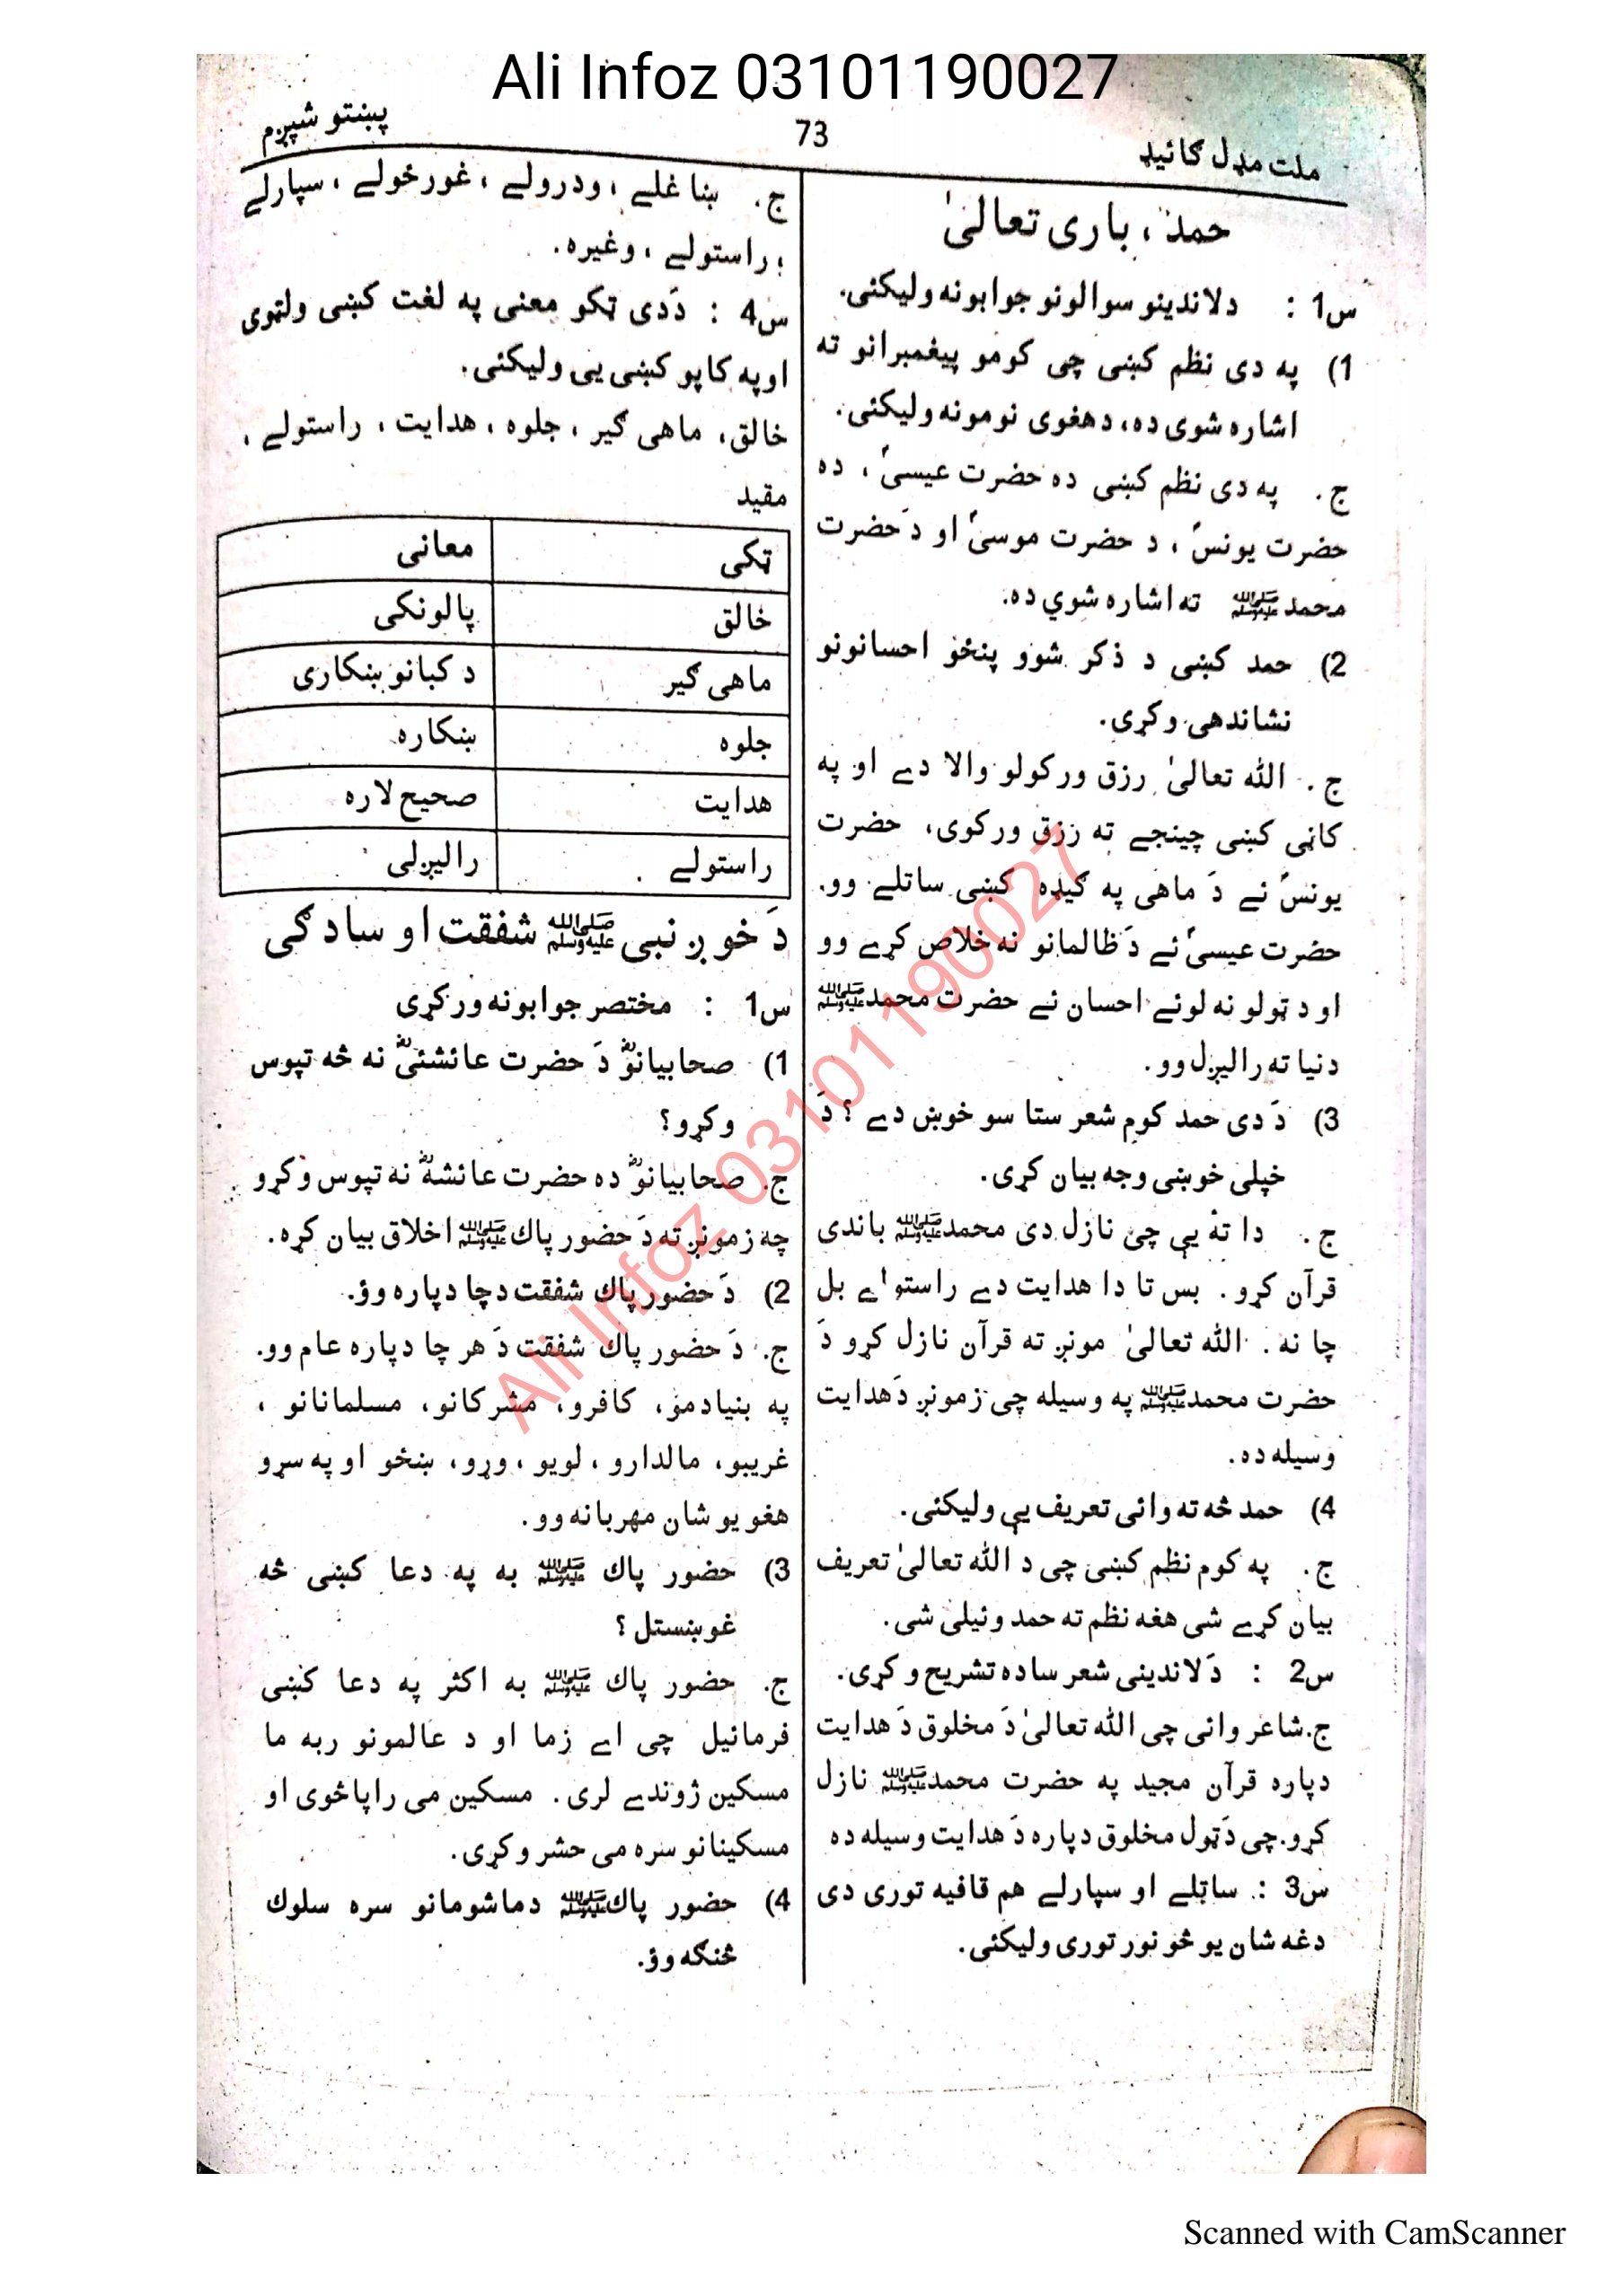 Ali Infoz 03101190027
ملت مډل ګائیډ
73
پښتو شپږم
حمد ، باری تعالیٰ
س1 : دلاندینو سوالونو جوابونه ولیکئی.
1) په دی نظم کښی چی کومو پیغمبرانو ته
اشاره شوی ده، دهغوی نومونه ولیکئی.
ج. په دی نظم کښی ده حضرت عیسیٰؑ ، ده
حضرت یونسؑ ، د حضرت موسیٰؑ او دَحضرت
محمدﷺ ته اشاره شوي ده.
2) حمد کښی د ذکر شوو پنځو احسانونو
نشاندهی وکړی.
ج. الله تعالیٰ رزق ورکولو والا دے او په
کاڼی کښی چینجے ته رزق ورکوی، حضرت
یونسؑ ئے دَ ماهی په ګیډه کښی ساتلے وو.
حضرت عیسیٰؑ ئے دَ ظالمانو نه خلاص کړے وو
او د ټولو نه لوئے احسان ئے حضرت محمدﷺ
دنیا ته رالیږل وو.
3) دَ دی حمد کوم شعر ستا سو خوښ دے ؟ دَ
خپلی خوښی وجه بیان کړی.
ج. دا تهٔ یې چی نازل دی محمدﷺ باندی
قرآن کړو. بس تا دا هدایت دے راستولے بل
چا نه. الله تعالیٰ مونږ ته قرآن نازل کړو دَ
حضرت محمدﷺ په وسیله چی زمونږ دَهدایت
وسیله ده.
4) حمد څه ته وائی تعریف یې ولیکئی.
ج. په کوم نظم کښی چی د الله تعالیٰ تعریف
بیان کړے شی هغه نظم ته حمد وئیلی شی.
س2 : دَلاندینی شعر ساده تشریح وکړی.
ج.شاعر وائی چی الله تعالیٰ دَ مخلوق دَ هدایت
دپاره قرآن مجید په حضرت محمدﷺ نازل
کړو.چی دَټول مخلوق دپاره دَ هدایت وسیله ده
س3 : ساټلے او سپارلے هم قافیه توری دی
دغه شان یو څو نور توری ولیکئی.
ج. ښنا غلے ، ودرولے ، غورځولے ، سپارلے
، راستولے ، وغیره.
س4 : دَدی ټکو معنی په لغت کښی ولټوی
اوپه کاپو کښی یی ولیکئی.
خالق، ماهی ګیر ، جلوه ، هدایت ، راستولے ،
مقید
ټکی معانی
خالق پالونکی
ماهی ګیر د کبانو ښکاری
جلوه ښکاره
هدایت صحیح لاره
راستولے رالیږلی
دَ خوږ نبیﷺ شفقت او سادګی
س1 : مختصر جوابونه ورکړی
1) صحابیانوؓ دَ حضرت عائشئیؓ نه څه تپوس
وکړو؟
ج. صحابیانوؓ ده حضرت عائشهؓ نه تپوس وکړو
چه زمونږ ته دَ حضور پاكﷺ اخلاق بیان کړه.
2) دَ حضور پاك شفقت دچا دپاره وؤ.
ج. دَ حضور پاك شفقت دَ هر چا دپاره عام وو.
په بنیادمو، کافرو، مشرکانو، مسلمانانو ،
غریبو، مالدارو ، لویو ، وړو، ښځو او په سړو
هغو یو شان مهربانه وو.
3) حضور پاك ﷺ به په دعا کښی څه
غوښستل ؟
ج. حضور پاك ﷺ به اکثر په دعا کښی
فرمائیل چی اے زما او د عالمونو ربه ما
مسکین ژوندے لری. مسکین می راپاڅوی او
مسکینانو سره می حشر وکړی.
4) حضور پاكﷺ دماشومانو سره سلوك
څنګه وؤ.
Ali Infoz 03101190027
Scanned with CamScanner